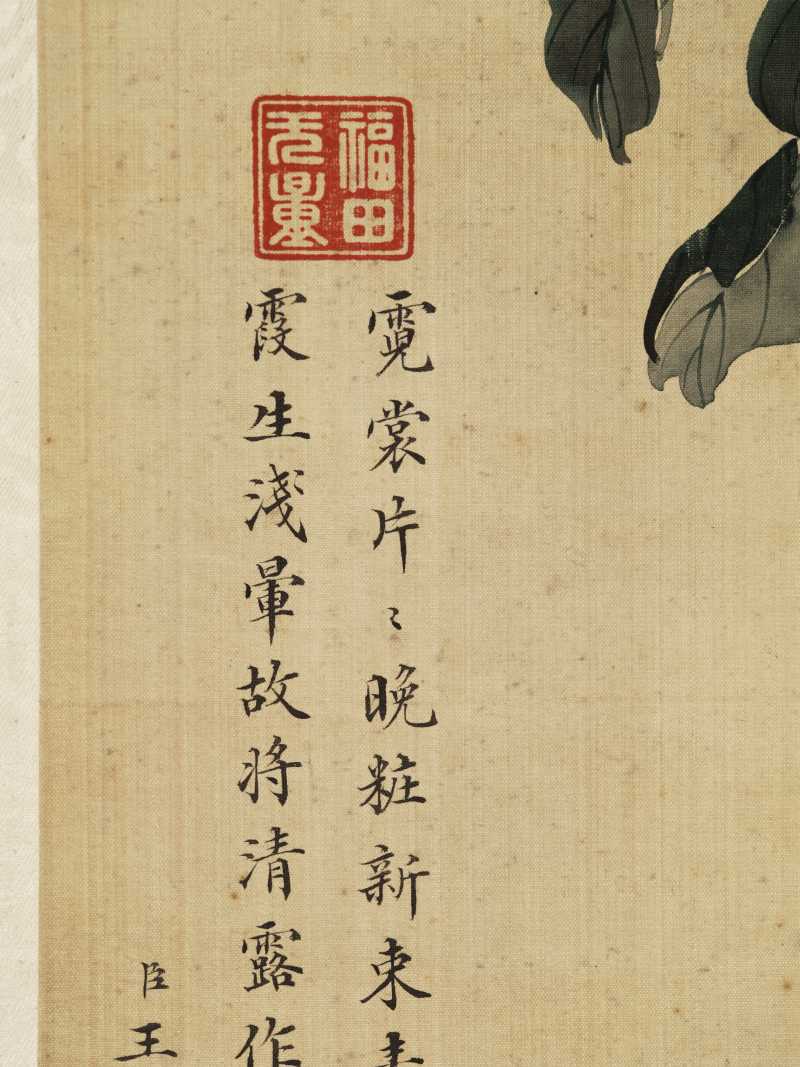 福田
无量
霓裳片〻晚粧新束
霞生淺暈故將清露作
臣王